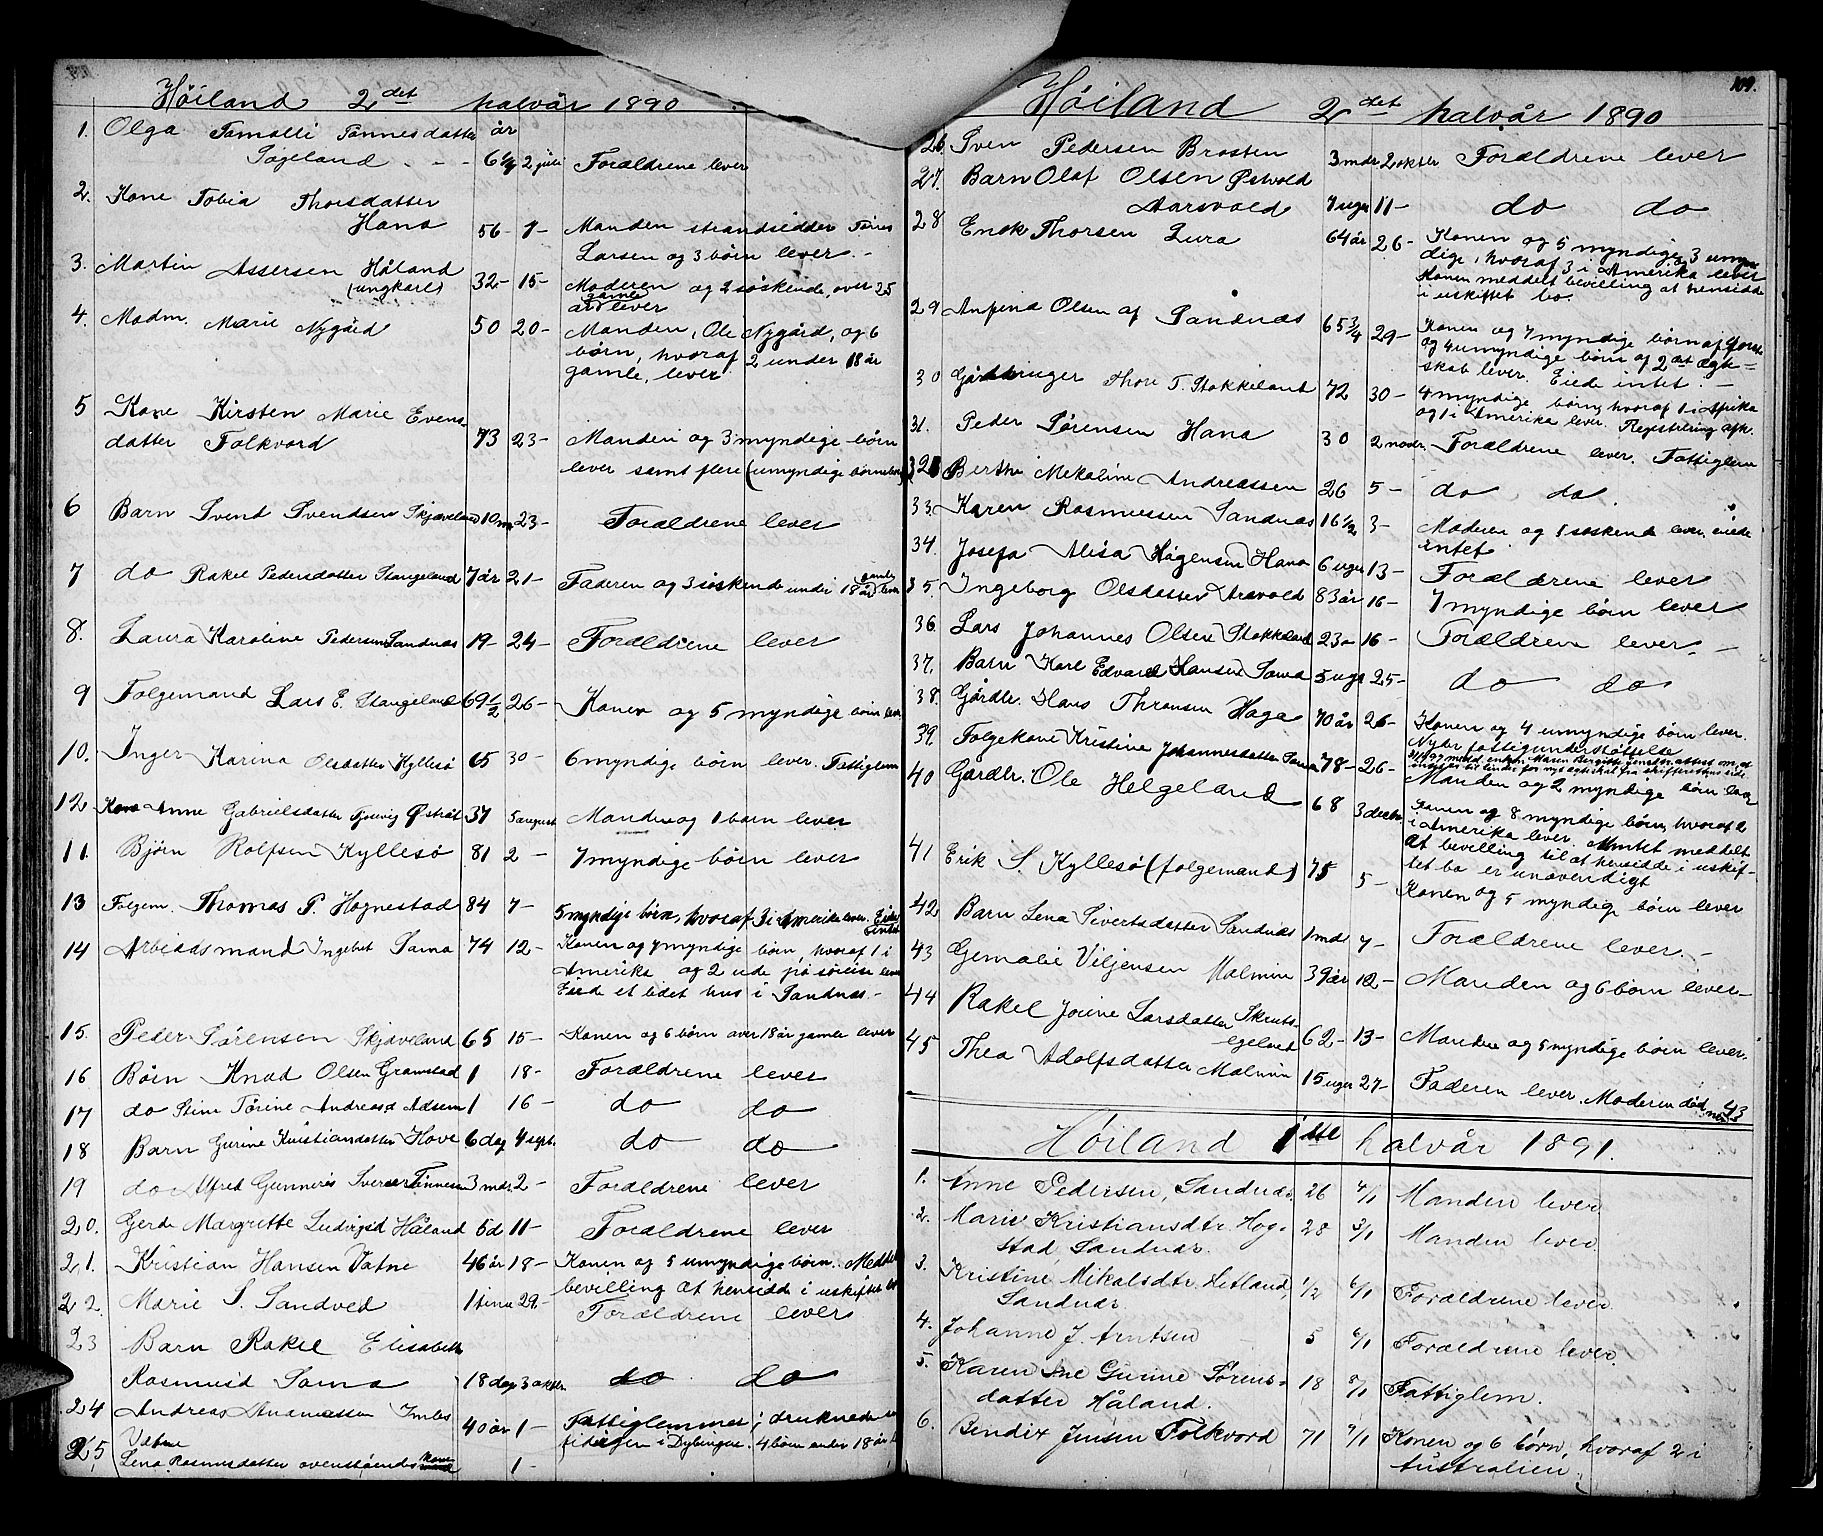 Høiland 2det halvår 1890
1. Olga Tomalli Tønnesdatter år
Søgeland - - - 6½ 2 juli Forældrene lever
2. Kone Tobia Thorsdatter
Hana 56 - 7 - Manden strandsidder Tønes
Larsen og 3 børn lever -
3. Martin Assersen Håland
(ungkarl) 32 - 15 - Moderen og 2 søskende, over 25
år gamle lever
4. Madm. Marie Nygård 50 20 - Manden, Ole Nygård, og 6
børn, hvoraf 2 under 18 år
gamle, lever
5 Kone Kirsten Marie Evens-
datter Folkvord 73 23 - Manden og 3 myndige børn
lever samt flere (umyndige børnebørn)
6 Barn Svend Svendsen Skjæveland 10 m 23 - Forældrene lever
7 do Rakel Pedersdatter Stangeland 7 år 21 - Faderen og 3 søskende under 18 år gamle lever
8. Laura Karoline Pedersen Sandnæs 19 - 24 - Forældrene lever
9 Folgemand Lars E. Stangeland 69½ 26 - Konen og 5 myndige børn lever
10. Inger Karina Olsdatter Kyllesø 65 30 - 6 myndige børn lever. Fattiglem
12 Kone Anne Gabrielsdatter Tjosvig Østråt 37 5 august Manden og 1 barn lever
11. Bjørn Rolfsen Kyllesø 81 2 - 7 myndige børn lever
13 Folgem. Thomas P. Hognestad 84 7 - 5 myndige børn, hvoraf 3 i Amerika lever. Eiede intet
14 Arbeidsmand Ingebret Soma 74 12 - Konen og 7 myndige børn, hvoraf 1 i
Amerika og 2 ude på søreise lever
Eiede et lidet hus i Sandnæs. -
15. Peder Sørensen Skjæveland 65 15 - Konen og 6 børn over 18 år gamle lever
16 Børn Knud Olsen Gramstad 1 18 - Forældrene lever
17 do Stine Tørine Andreasd Adsem 1 16 - do do
18 Barn Gurine Kristiandatter Hove 6 dag 4 sept. do do
19 do Alfred Gunneris Iversen Tønnesen 3 mdr. 2 - Forældrene lever
20. Gerda Margrette Ludvigsd Håland 6 d 11 - Forældrene lever
21. Kristian Hansen Vatne 46 år 18 - Konen og 5 umyndige børn. Meddelt
bevilling at hensidde i uskiftet bo
22. Marie S. Sandved 1 time 29 - Forældrene lever
23 Barn Rakel Elisabeth
Rasmusd Soma 18 dag 3 oktbr do do
24 Andreas Ananiassen Imbs 40 år 1 - Fattiglemmer; druknede
Vatne
25 Lena Rasmusdatter ovenståendes Kone 1 - 4 børn under 18 år
109.
Høiland 2det halvår 1890
26. Sven Pedersen Brasten 3 mdr 2 oktbr Forældrene lever
27. Barn Olaf Olsen Østvold
Aarsvold 7 uger 11 - do do
28 Enok Thorsen Lura 64 år 26 - Konen og 5 myndige, 3 umyn
dige, hvoraf 3 i Amerika lever
Konen meddelt bevilling at hensidde
i uskiftet bo.
29 Anfind Olsen af Sandnæs 65¾ 29 - Konen og 7 myndige børn af første
og 4 umyndige børn af 2det ægte-
skab lever. Eiede intet. -
30 Gårdbruger Thore T. Stokkeland 72 30 - 4 myndige børn, hvoraf 1 i Afrika
og 1 i Amerika lever. Registrering afh.
31. Peder Sørensen Hana 30 2 novbr. Forældrene lever. Fattiglem
32 Berthe Mekaline Andreassen 26 5 - do. do.
33. Karen Rasmussen Sandnæs 16½ 3 - Moderen og 1 søskend lever, eiede
intet.
34. Josefa Alisa Hågensen Hana 6 uger 13 - Forældrene lever
35. Ingeborg Olsdatter Arsvold 83 år 16 - 7 myndige børn lever
36. Lars Johannes Olsen Stokkeland 23 - 16 - Forældren lever. -
37. Barn Karl Edvard Hansen Soma 5 uge 25 - do do
38. Gårdbr. Hans Thronsen Hage 70 år 26 - Konen og 4 umyndige børn lever.
Nyder fattigunderstøttelse
39. Folgekone Kristine Johannesdatter Soma 78 - 26 - Manden og 2 myndige børn lever
40 Gårdbr. Ole Helgeland 68 3 decbr. Konen og 8 myndige børn, hvoraf 2
i Amerika lever. Amtet meddelt
at bevilling til at hensidde i uskif-
tet bo er unødvendigt
41 Erik S. Kyllesø (folgemand) 75 5 - Konen og 5 myndig børn lever
42 Barn Lena Sivertsdatter Sandnæs 1 mdr 7 - Forældrene lever. -
43 Gemalie Viljensen Malmin 39 år 12 - Manden og 6 børn lever -
44 Rakel Joine Larsdatter Skruds-
egeland 62 - 13 - Manden og 5 myndige børn lever.
45 Thea Adolfsdatter Malmin 15 uger 27 - Faderen lever. Moderen død No 43
Høiland 1ste halvår 1891.
1. Anne Pedersen, Sandnæs. 26 4/1 Manden lever
2. Marie Kristiansdtr. Hog-
stad Sandnæs. 28 3/1 Manden lever
3. Kristine Mikalsdtr. Hetland,
Sandnæs. 1/2 6/1 Forældrene lever.
4. Johanne J. Arntsen 5 6/1 Forældrene lever.
5. Karen Ine Gurine Sørens-
datter Håland. 18 8/1 Fattiglem.
6. Bendix Jensen Folkvord 71 7/1 Konen og 6 børn, hvoraf 2 i
Australien.